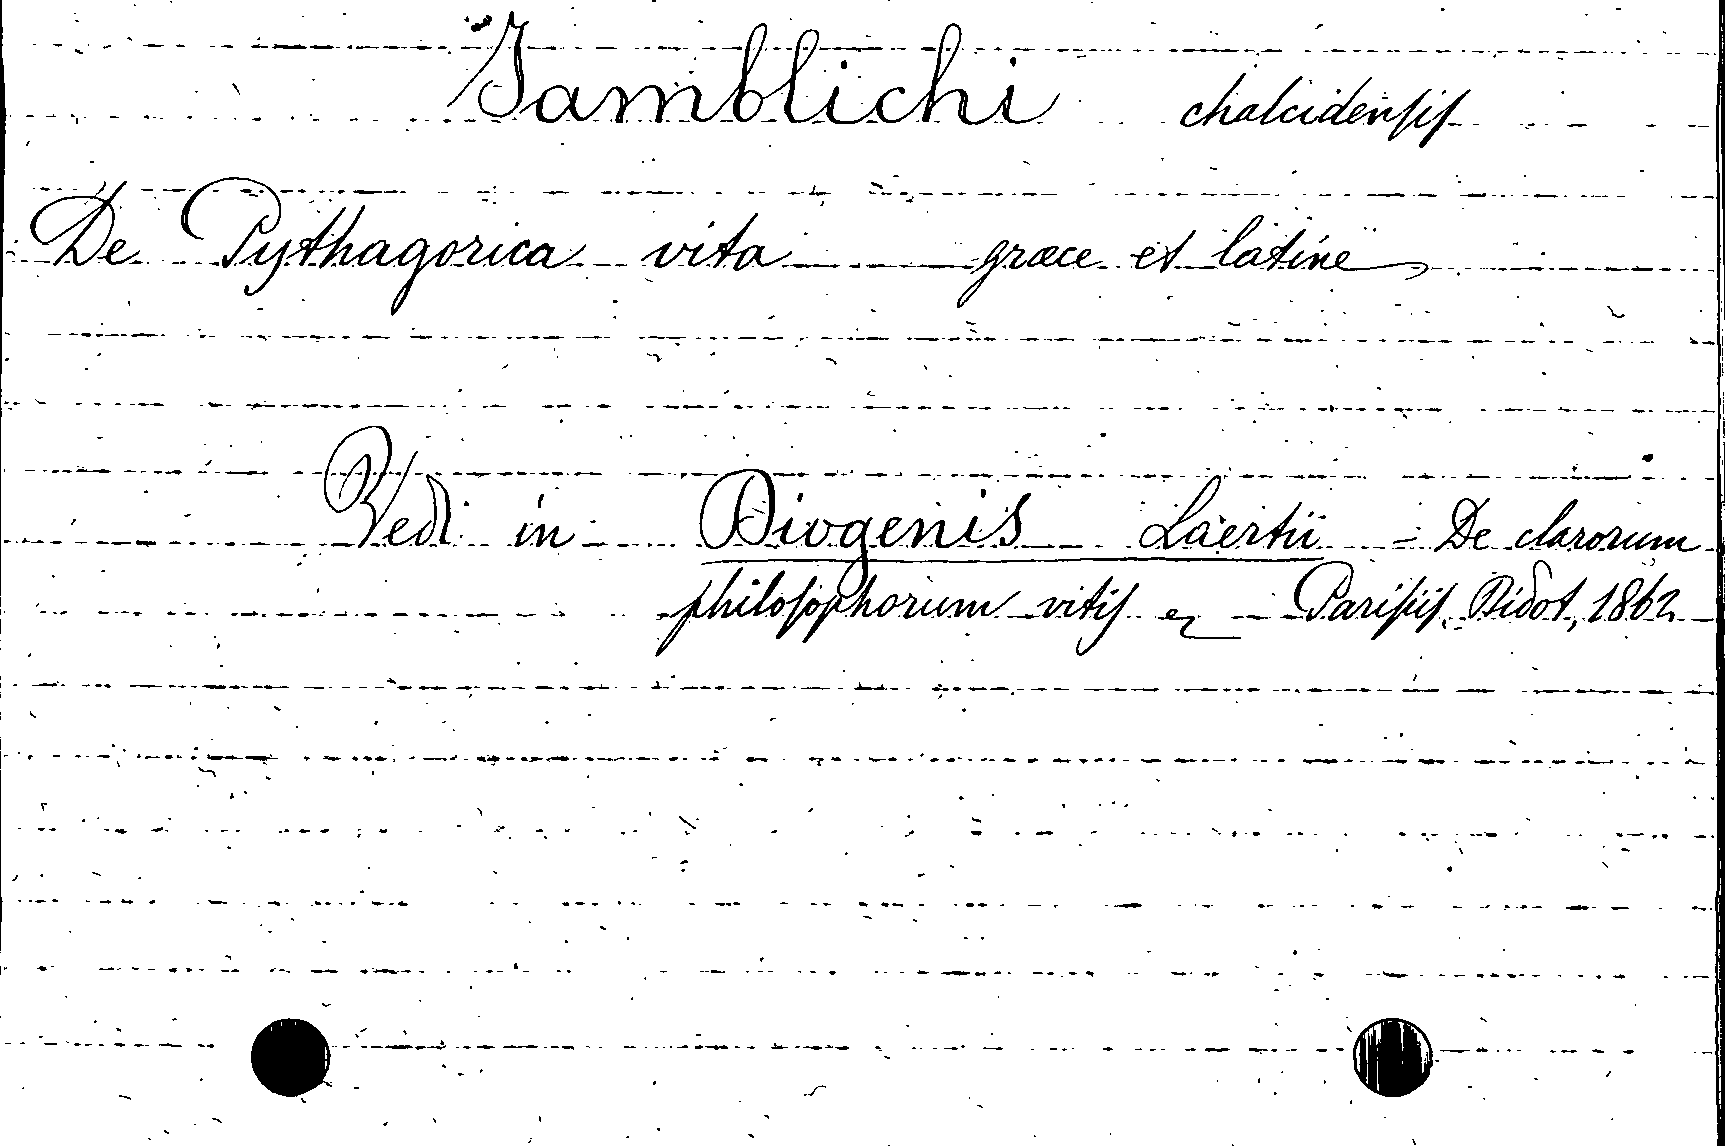 Jamblichi chalcidensis
De Pythagorica vita graece et latine
Vedi in Diogenis Laertii - De clarorum
philosophorum vitis - Parisiis, Didot, 1862